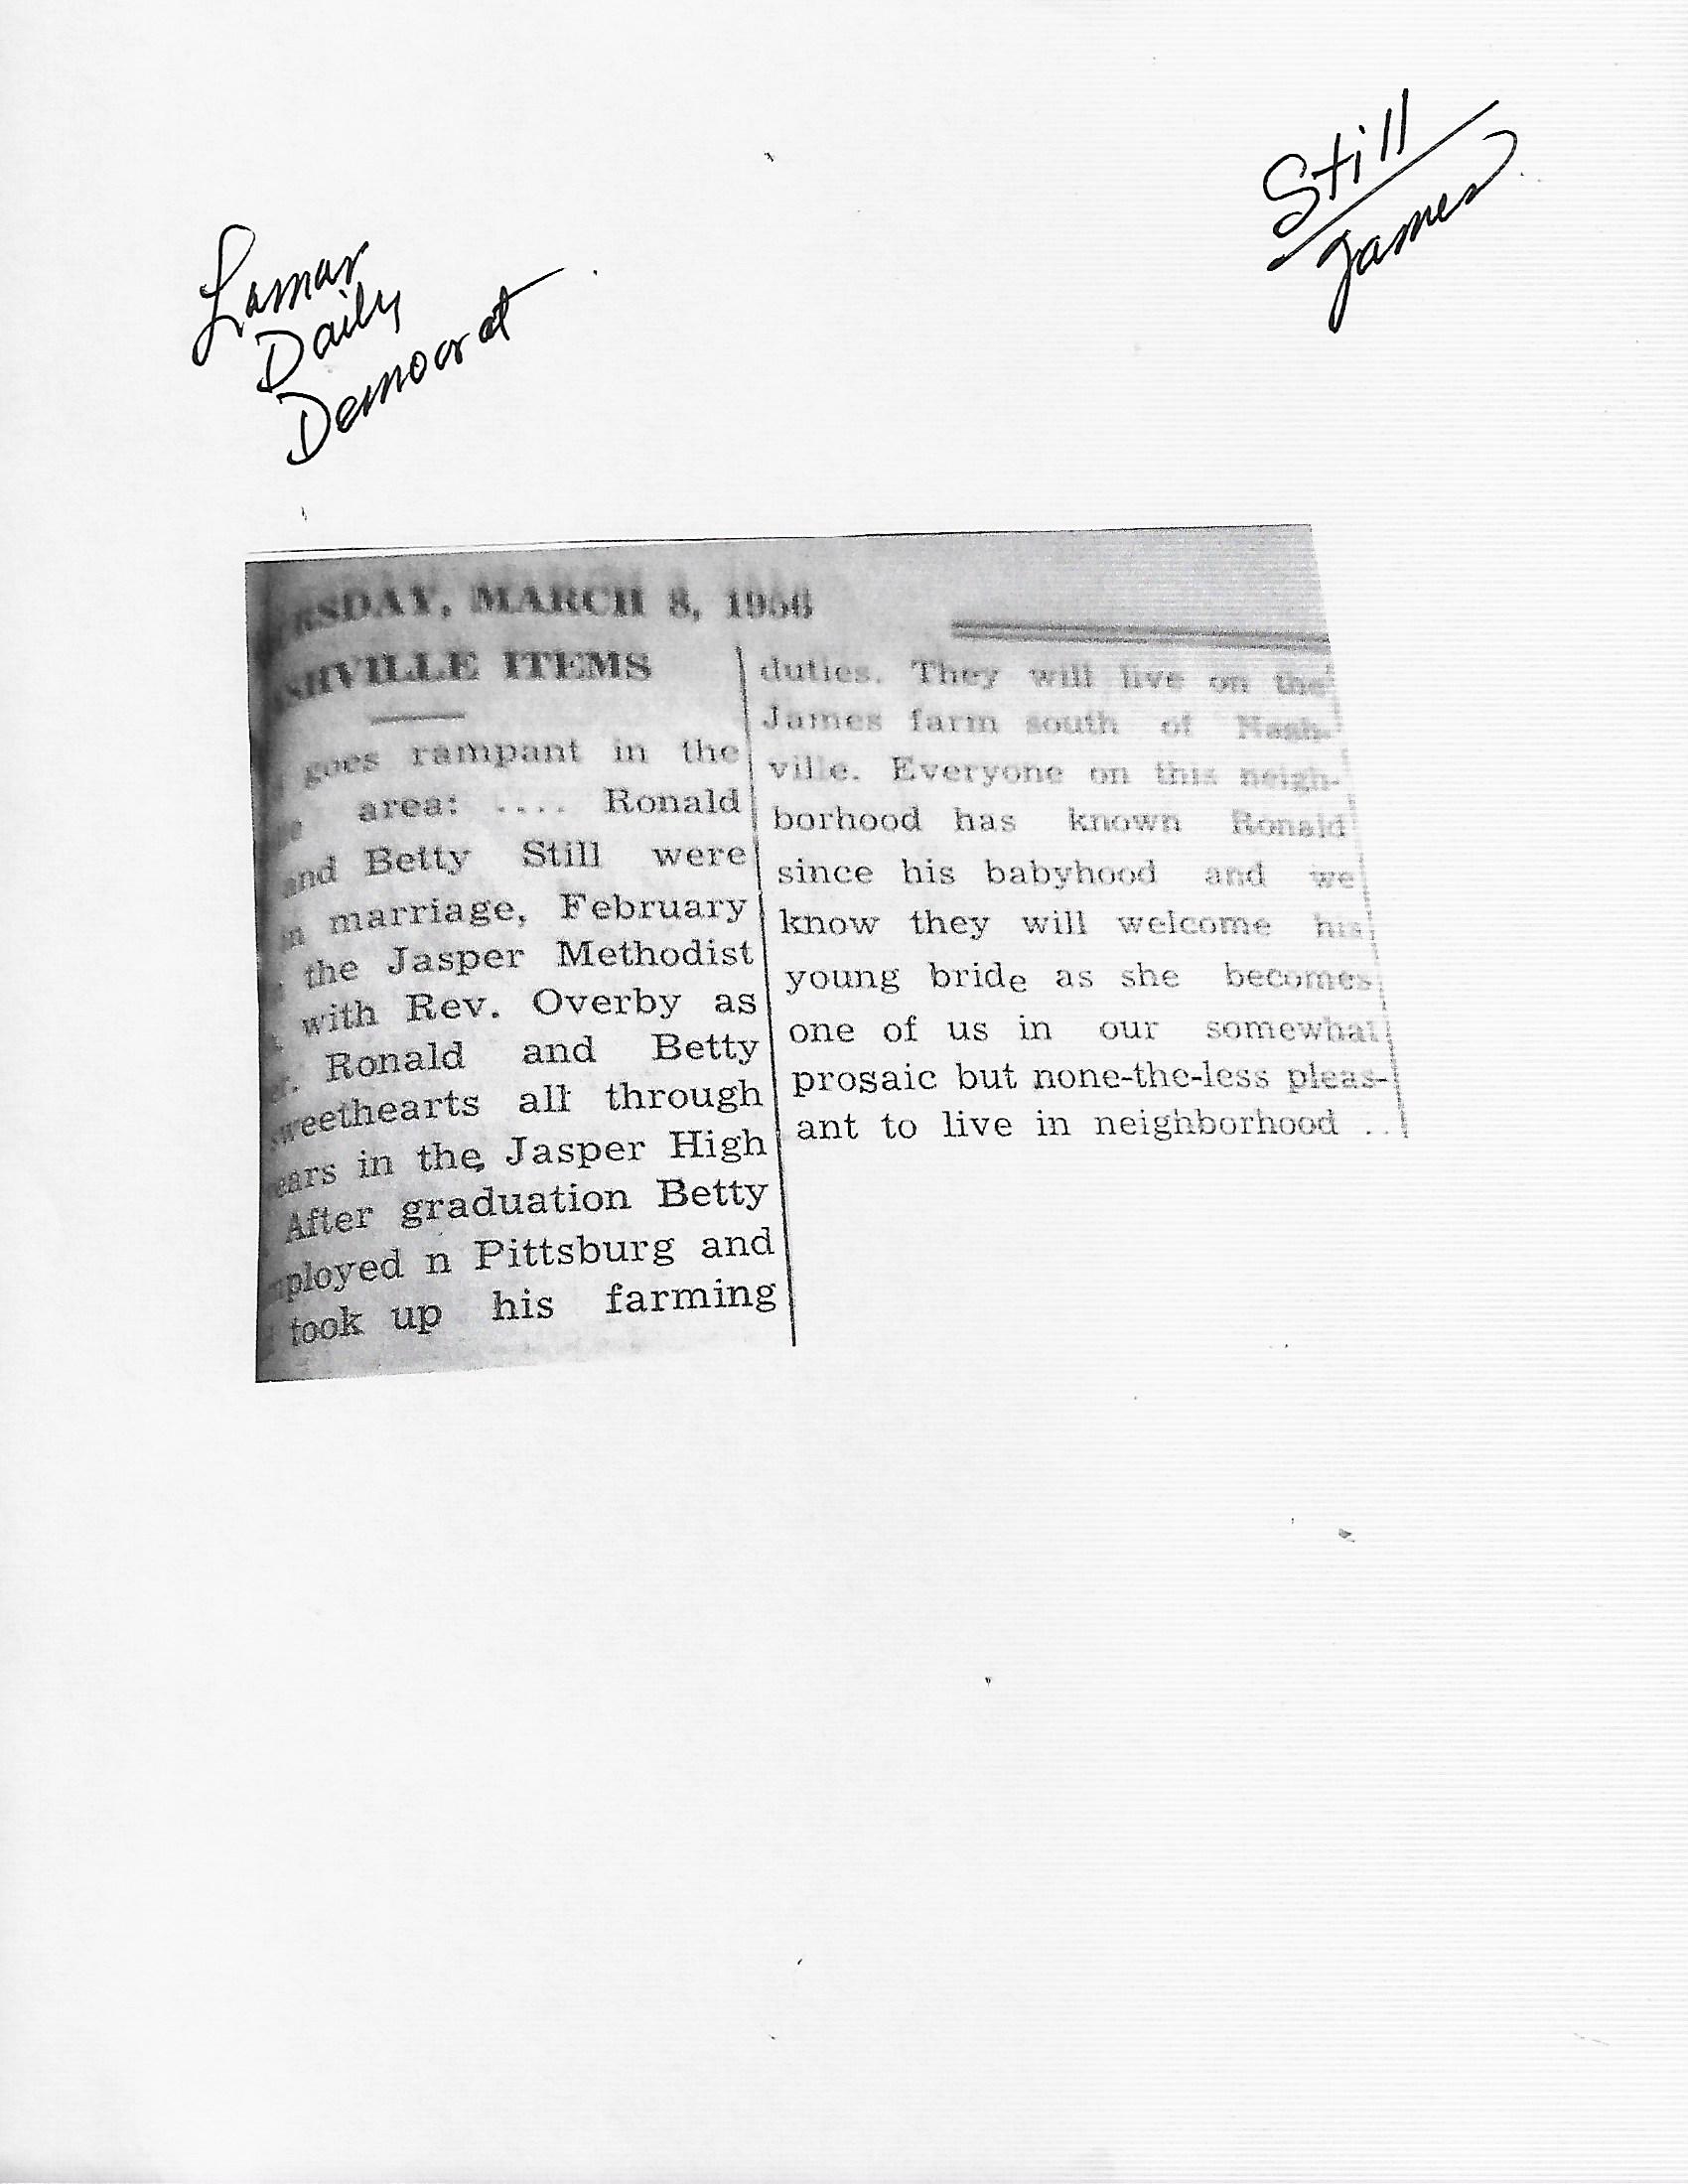 Still
James
Lamar
Daily
Democrat
RSDAY, MARCH 8, 1956
SHVILLE ITEMS
goes rampant in the
area: .... Ronald
and Betty Still were
in marriage, February
the Jasper Methodist
with Rev. Overby as
er. Ronald and Betty
sweethearts all through
ears in the Jasper High
After graduation Betty
mployed n Pittsburg and
took up his farming
duties. They will live on the
James farm south of Nash-
ville. Everyone on this neigh-
borhood has known Ronald
since his babyhood and we
know they will welcome his
young bride as she becomes
one of us in our somewhat
prosaic but none-the-less pleas-
ant to live in neighborhood ..